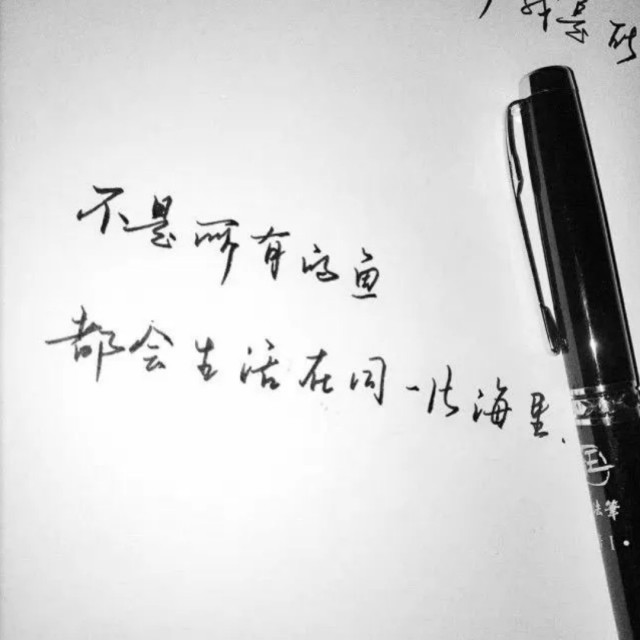 不是所有的鱼
都会生活在同一片海里.